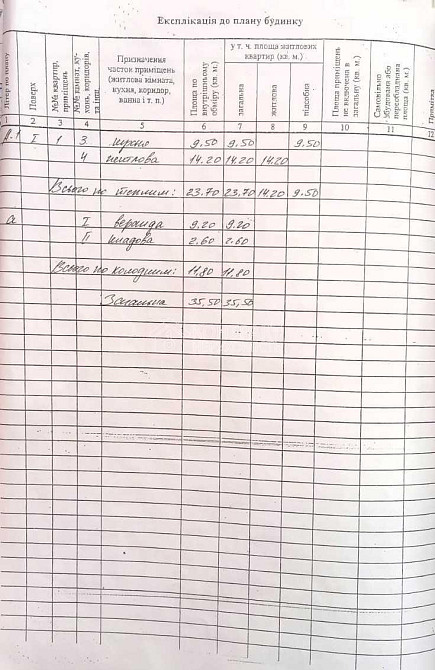 Експлікація до плану будинку
Літер по плану
Поверх
№№ квартир, приміщень
№№ кімнат, кухонь, коридорів, та інш.
Призначення часток приміщень (житлова кімната, кухня, коридор, ванна і т. п.)
Площа по внутрішньому обміру (кв. м.)
у т. ч. площа житлових квартир (кв. м.)
загальна
житлова
підсобна
Площа приміщень не включена в загальну (кв. м.)
Самовільно збудована або переобладнана площа (кв. м.)
Примітка
1 2 3 4 5 6 7 8 9 10 11
I 1 3 кухня 9.50 9.50 9.50
4 житлова 14.20 14.20 14.20
Всього по теплим: 23.70 23.70 14.20 9.50
а I веранда 9.20 9.20
II кладова 2.60 2.60
Всього по холодним: 11,80 11,80
Загальна 35,50 35,50